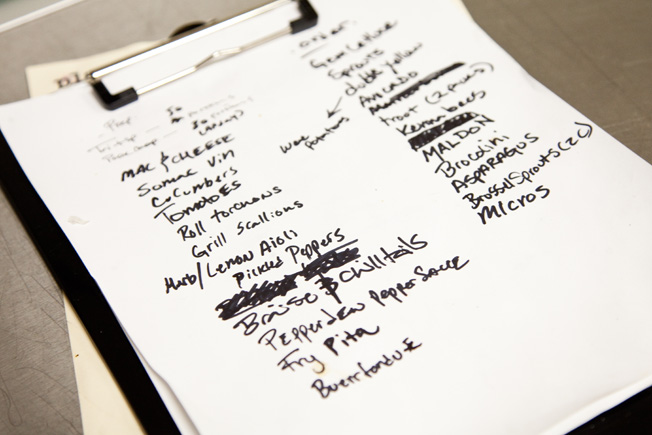 Prep
MAC & CHEESE
Sumac Vin
CuCumbers
TOMATOES
Roll torchons
Grill Scallions
Herb/Lemon Aioli
Pickled Peppers
Braise & Chill tails
Pepperdew Pepper Sauce
Fry Pita
Buerr fondue
Wax
potatoes
order
Gem Lettuce
Sprouts
Jumbo Yellow
Avocado
trout (2 packs)
MALDON
Brocolini
ASPARAGUS
Brussel Sprouts (2c)
MICROS